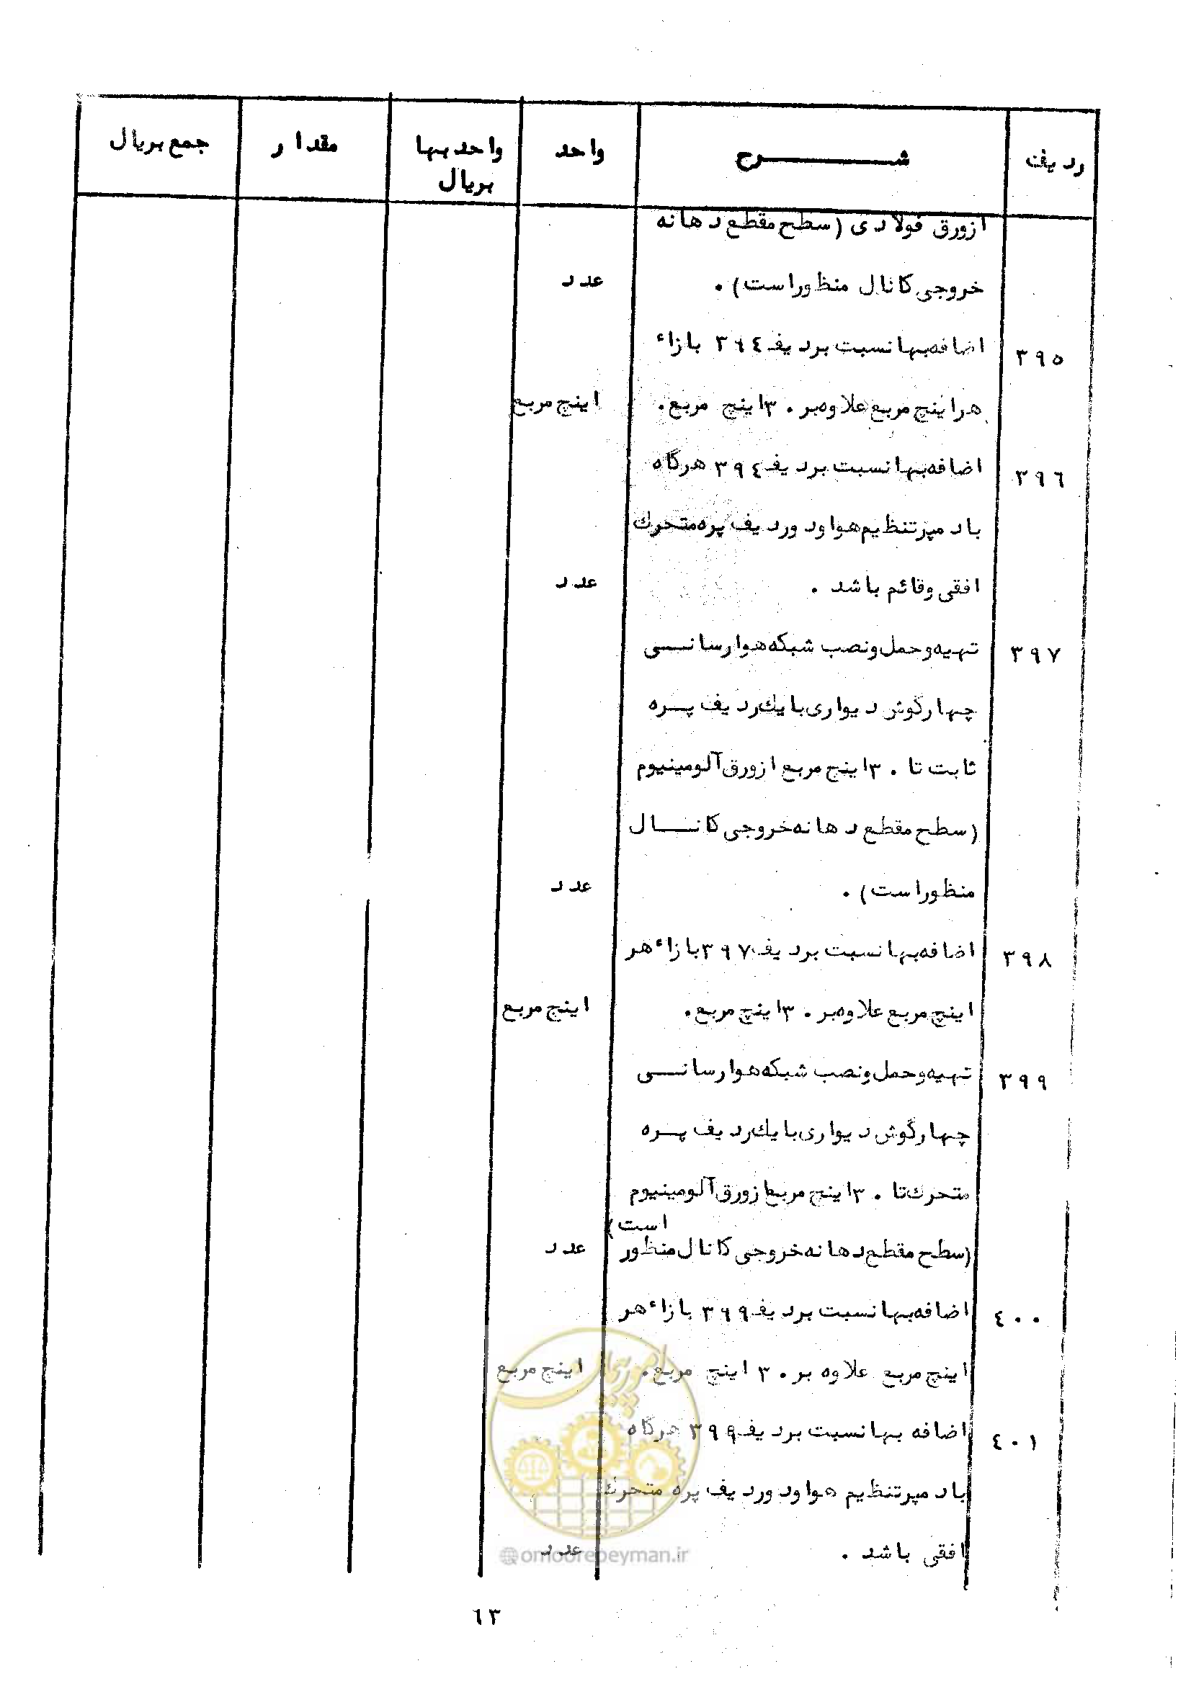 ردیف شرح واحد واحد بها بریال مقدار جمع بریال
ازورق فولادی (سطح مقطع دهانه
خروجی کانال منظوراست). عدد
۳۹۵ اضافه‌بها نسبت بردیف ۳۹٤ بازاء
هراینچ مربع علاوه‌بر ۳۰ اینچ مربع. اینچ مربع
۳۹٦ اضافه‌بها نسبت بردیف ۳۹٤ هرگاه
بادمپرتنظیم‌هوا ودوردیف پره‌متحرك
افقی وقائم باشد. عدد
۳۹۷ تهیه‌وحمل‌ونصب شبکه‌هوارسانی
چهارگوش دیواری‌بایك‌ردیف پره
ثابت تا ۳۰ اینچ مربع ازورق‌آلومینیوم
(سطح مقطع دهانه‌خروجی کانال
منظوراست). عدد
۳۹۸ اضافه‌بها نسبت بردیف ۳۹۷ بازاء هر
اینچ مربع علاوه‌بر ۳۰ اینچ مربع. اینچ مربع
۳۹۹ تهیه‌وحمل‌ونصب شبکه‌هوارسانی
چهارگوش دیواری‌بایك‌ردیف پره
متحرك‌تا ۳۰ اینچ مربع‌ازورق‌آلومینیوم
(سطح مقطع‌دهانه‌خروجی کانال منظور است) عدد
٤۰۰ اضافه‌بها نسبت بردیف ۳٦۹ بازاء هر
اینچ مربع علاوه بر ۳۰ اینچ مربع. اینچ مربع
٤۰۱ اضافه بها نسبت بردیف ۳۹۹ هرگاه
بادمپرتنظیم هوا ودوردیف پره متحرك
افقی باشد. عدد
امور پیمان
@omoorepeyman.ir
٦۳